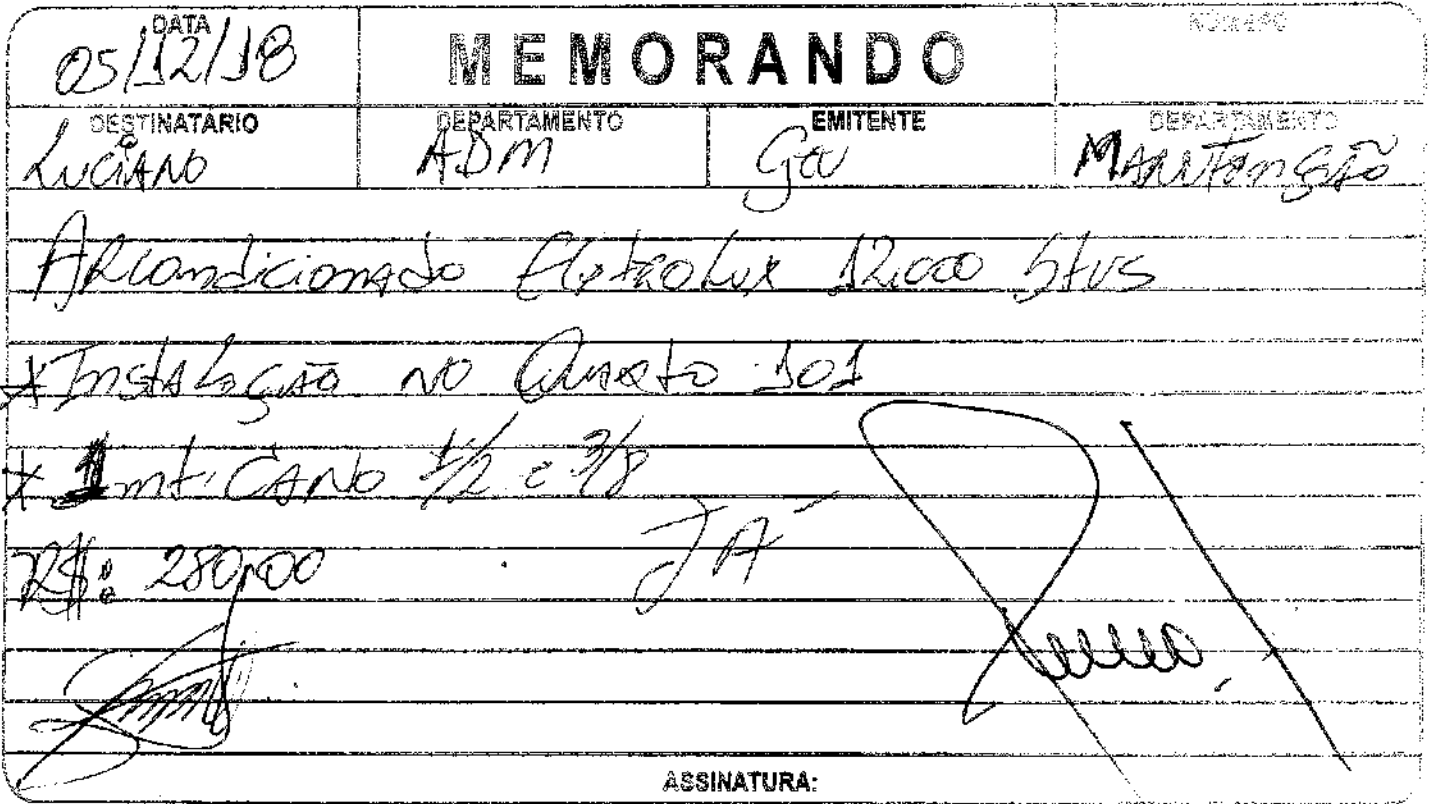 DATA
05/12/18
MEMORANDO
NÚMERO
DESTINATÁRIO
LUCIANO
DEPARTAMENTO
ADM
EMITENTE
DEPARTAMENTO
MANUTENÇÃO
ARCondicionado EletroLux 12.000 btus
* InstaLação NO Quarto 101
* 1 mt. CANO 1/2 e 3/8
JÁ
R$: 280,00
ASSINATURA: